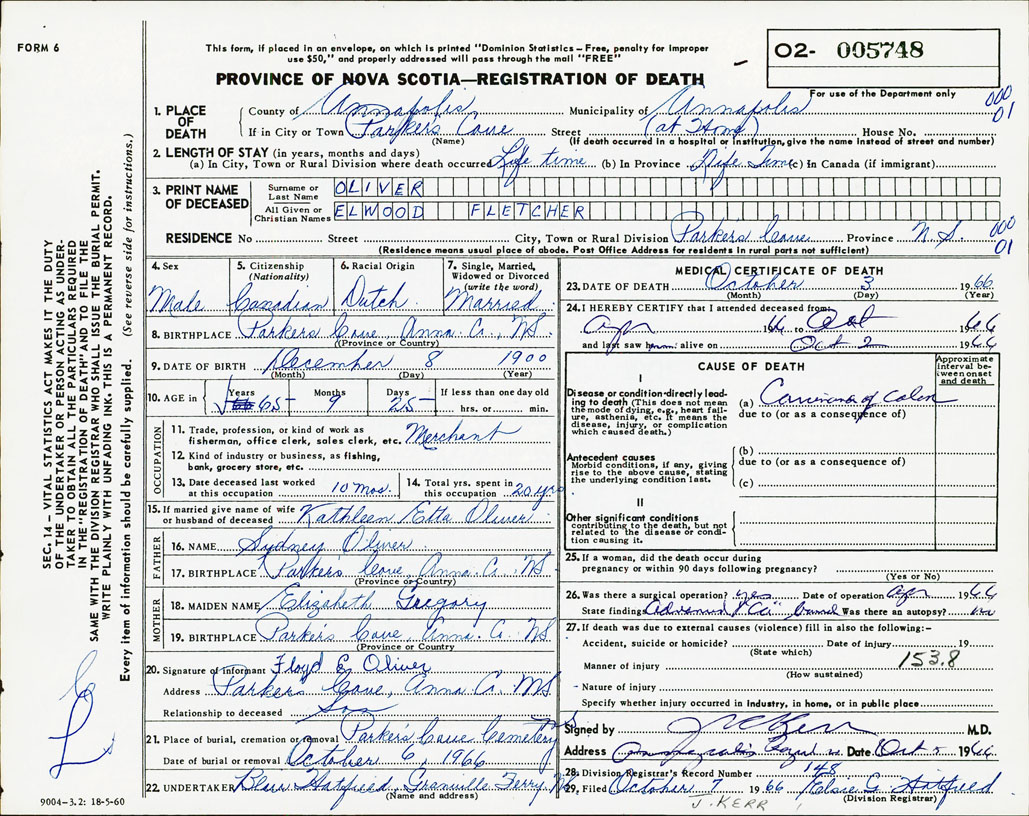 FORM 6
This form, if placed in an envelope, on which is printed "Dominion Statistics – Free, penalty for improper
use $50," and properly addressed will pass through the mail "FREE"
O2- 005748
PROVINCE OF NOVA SCOTIA—REGISTRATION OF DEATH
For use of the Department only
000
01
1. PLACE OF DEATH County of Annapolis Municipality of Annapolis
If in City or Town Parker's Cove Street (at Home) House No.
(Name) (If death occurred in a hospital or institution, give the name instead of street and number)
2. LENGTH OF STAY (in years, months and days)
(a) In City, Town or Rural Division where death occurred Life time (b) In Province Life Time (c) In Canada (if immigrant)
3. PRINT NAME OF DECEASED Surname or Last Name OLIVER
All Given or Christian Names ELWOOD FLETCHER
RESIDENCE No Street City, Town or Rural Division Parker's Cove Province N.S.
000
01
(Residence means usual place of abode. Post Office Address for residents in rural parts not sufficient)
4. Sex Male
5. Citizenship (Nationality) Canadian
6. Racial Origin Dutch
7. Single, Married, Widowed or Divorced (write the word) Married
8. BIRTHPLACE Parkers Cove Anna. Co., NS
(Province or Country)
9. DATE OF BIRTH December 8 1900
(Month) (Day) (Year)
10. AGE in Years 65 Months 9 Days 25 If less than one day old
hrs. or min.
OCCUPATION
11. Trade, profession, or kind of work as
fisherman, office clerk, sales clerk, etc. Merchant
12. Kind of industry or business, as fishing,
bank, grocery store, etc.
13. Date deceased last worked
at this occupation 10 mos.
14. Total yrs. spent in
this occupation 20 yrs
15. If married give name of wife
or husband of deceased Kathleen Etta Oliver
FATHER
16. NAME Sydney Oliver
17. BIRTHPLACE Parkers Cove, Anna. Co. NS
(Province or Country)
MOTHER
18. MAIDEN NAME Elizabeth Gregory
19. BIRTHPLACE Parker's Cove, Anna. Co. NS
(Province or Country
20. Signature of informant Floyd E. Oliver
Address Parker's Cove, Anna Co. NS
Relationship to deceased Son
21. Place of burial, cremation or removal Parker's Cove Cemetery NS
Date of burial or removal October 6, 1966
22. UNDERTAKER Blair Hatfield, Granville Ferry, NS
(Name and address)
MEDICAL CERTIFICATE OF DEATH
23. DATE OF DEATH October 3 1966
(Month) (Day) (Year)
24. I HEREBY CERTIFY that I attended deceased from
Apr 66 to Oct 1966
and last saw him alive on Oct 2 1966
CAUSE OF DEATH
Approximate interval between onset and death
I
Disease or condition directly leading to death (This does not mean the mode of dying, e.g., heart failure, asthenia, etc. It means the disease, injury, or complication which caused death.)
(a) Carcinoma of colon
due to (or as a consequence of)
Antecedent causes
Morbid conditions, if any, giving rise to the above cause, stating the underlying condition last.
(b)
due to (or as a consequence of)
(c)
II
Other significant conditions
contributing to the death, but not related to the disease or condition causing it.
25. If a woman, did the death occur during
pregnancy or within 90 days following pregnancy?
(Yes or No)
26. Was there a surgical operation? yes Date of operation Apr 1966
State findings Adenoma "Ca" bowel Was there an autopsy? no
27. If death was due to external causes (violence) fill in also the following:–
Accident, suicide or homicide? Date of injury 19
(State which)
Manner of injury 153.8
(How sustained)
Nature of injury
Specify whether injury occurred in industry, in home, or in public place
Signed by Kerr M.D.
Address Annapolis Royal Date Oct 5 1966
28. Division Registrar's Record Number 148
29. Filed October 7 1966 Elsie G. Hatfield
(Division Registrar)
J. KERR
9004-3.2: 18-5-60
SEC. 14 – VITAL STATISTICS ACT MAKES IT THE DUTY
OF THE UNDERTAKER OR PERSON ACTING AS UNDER-
TAKER TO OBTAIN ALL THE PARTICULARS REQUIRED
IN THE "REGISTRATION OF DEATH" AND TO FILE THE
SAME WITH THE DIVISION REGISTRAR WHO SHALL ISSUE THE BURIAL PERMIT.
WRITE PLAINLY WITH UNFADING INK. THIS IS A PERMANENT RECORD.
Every item of information should be carefully supplied. (See reverse side for instructions.)